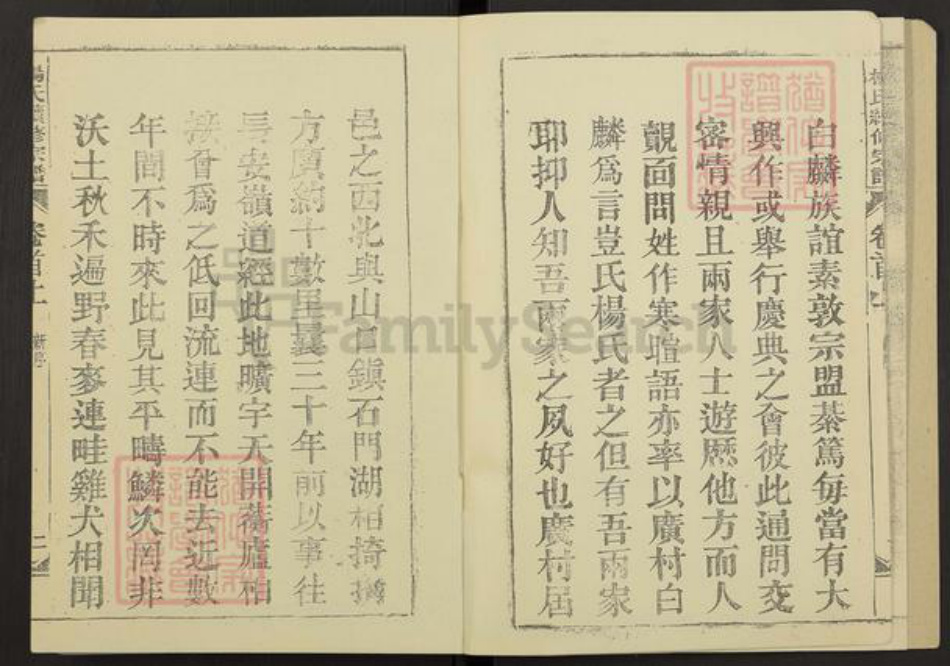 白麟族誼素敦宗盟蓁篤每當有大
興作或舉行慶典之會彼此通問交
密情親且兩家人士遊歷他方而人
覿面問姓作寒暄語亦率以廣村白
麟爲言豈氏楊氏者之但有吾兩家
耶抑人知吾兩家之夙好也廣村居
邑之西北與山口鎮石門湖相掎
方廣約十數里曩三十年前以事往
長安嶺道經此地曠宇天開蔀廬相
接會爲之低回流連而不能去近數
年間不時來此見其平疇鱗次罔非
沃土秋禾遍野春麥連畦雞犬相聞
楊氏續修宗譜
卷首上
二
FamilySearch